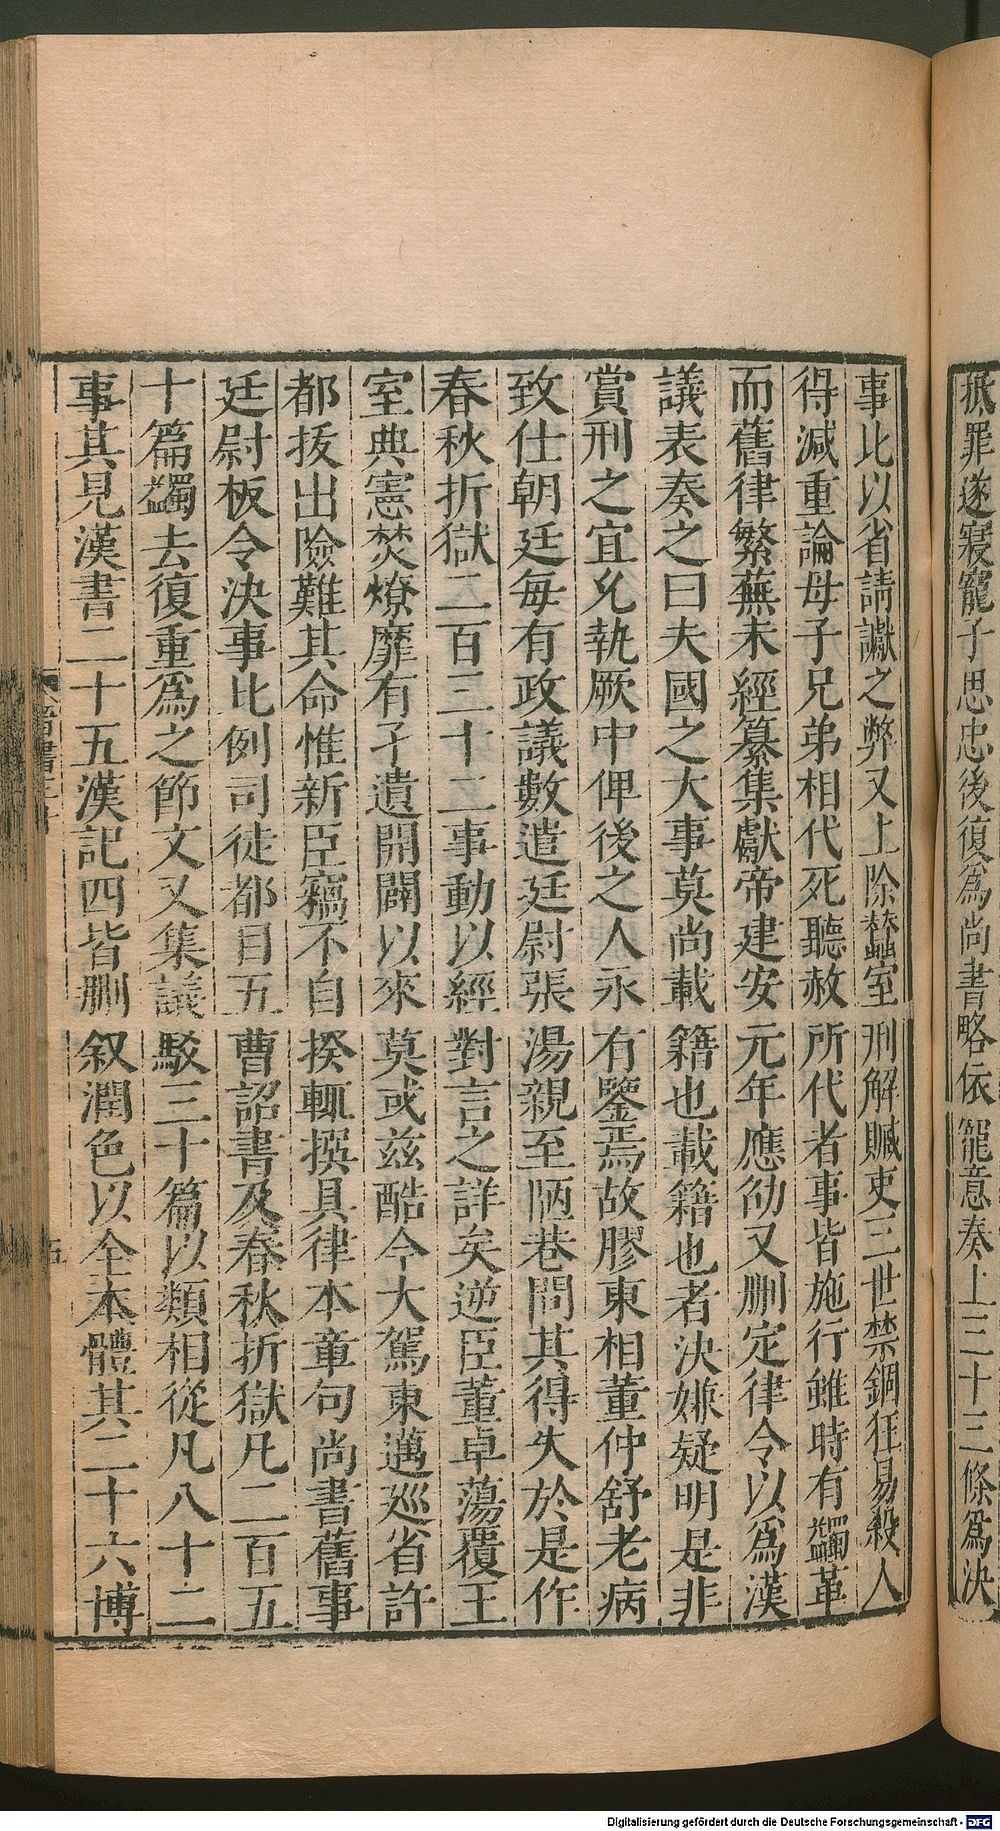 抵罪遂寢寵子思忠後復爲尚書略依寵意奏上三十三條爲決
事比以省請讞之弊又上除蠶室刑解贓吏三世禁錮狂易殺人
得減重論母子兄弟相代死聽赦所代者事皆施行雖時有蠲革
而舊律繁蕪未經纂集獻帝建安元年應劭又删定律令以爲漢
議表奏之曰夫國之大事莫尚載籍也載籍也者決嫌疑明是非
賞刑之宜允執厥中俾後之人永有鑒焉故膠東相董仲舒老病
致仕朝廷每有政議數遣廷尉張湯親至陋巷問其得失於是作
春秋折獄二百三十二事動以經對言之詳矣逆臣董卓蕩覆王
室典憲焚燎靡有孑遺開闢以來莫或兹酷今大駕東邁巡省許
都拔出險難其命惟新臣竊不自揆輒撰具律本章句尚書舊事
廷尉板令決事比例司徒都目五曹詔書及春秋折獄凡二百五
十篇蠲去復重爲之節文又集議駁三十篇以類相從凡八十二
事其見漢書二十五漢記四皆删叙潤色以全本體其二十六博
晉書三十
五
Digitalisierung gefördert durch die Deutsche Forschungsgemeinschaft - DFG